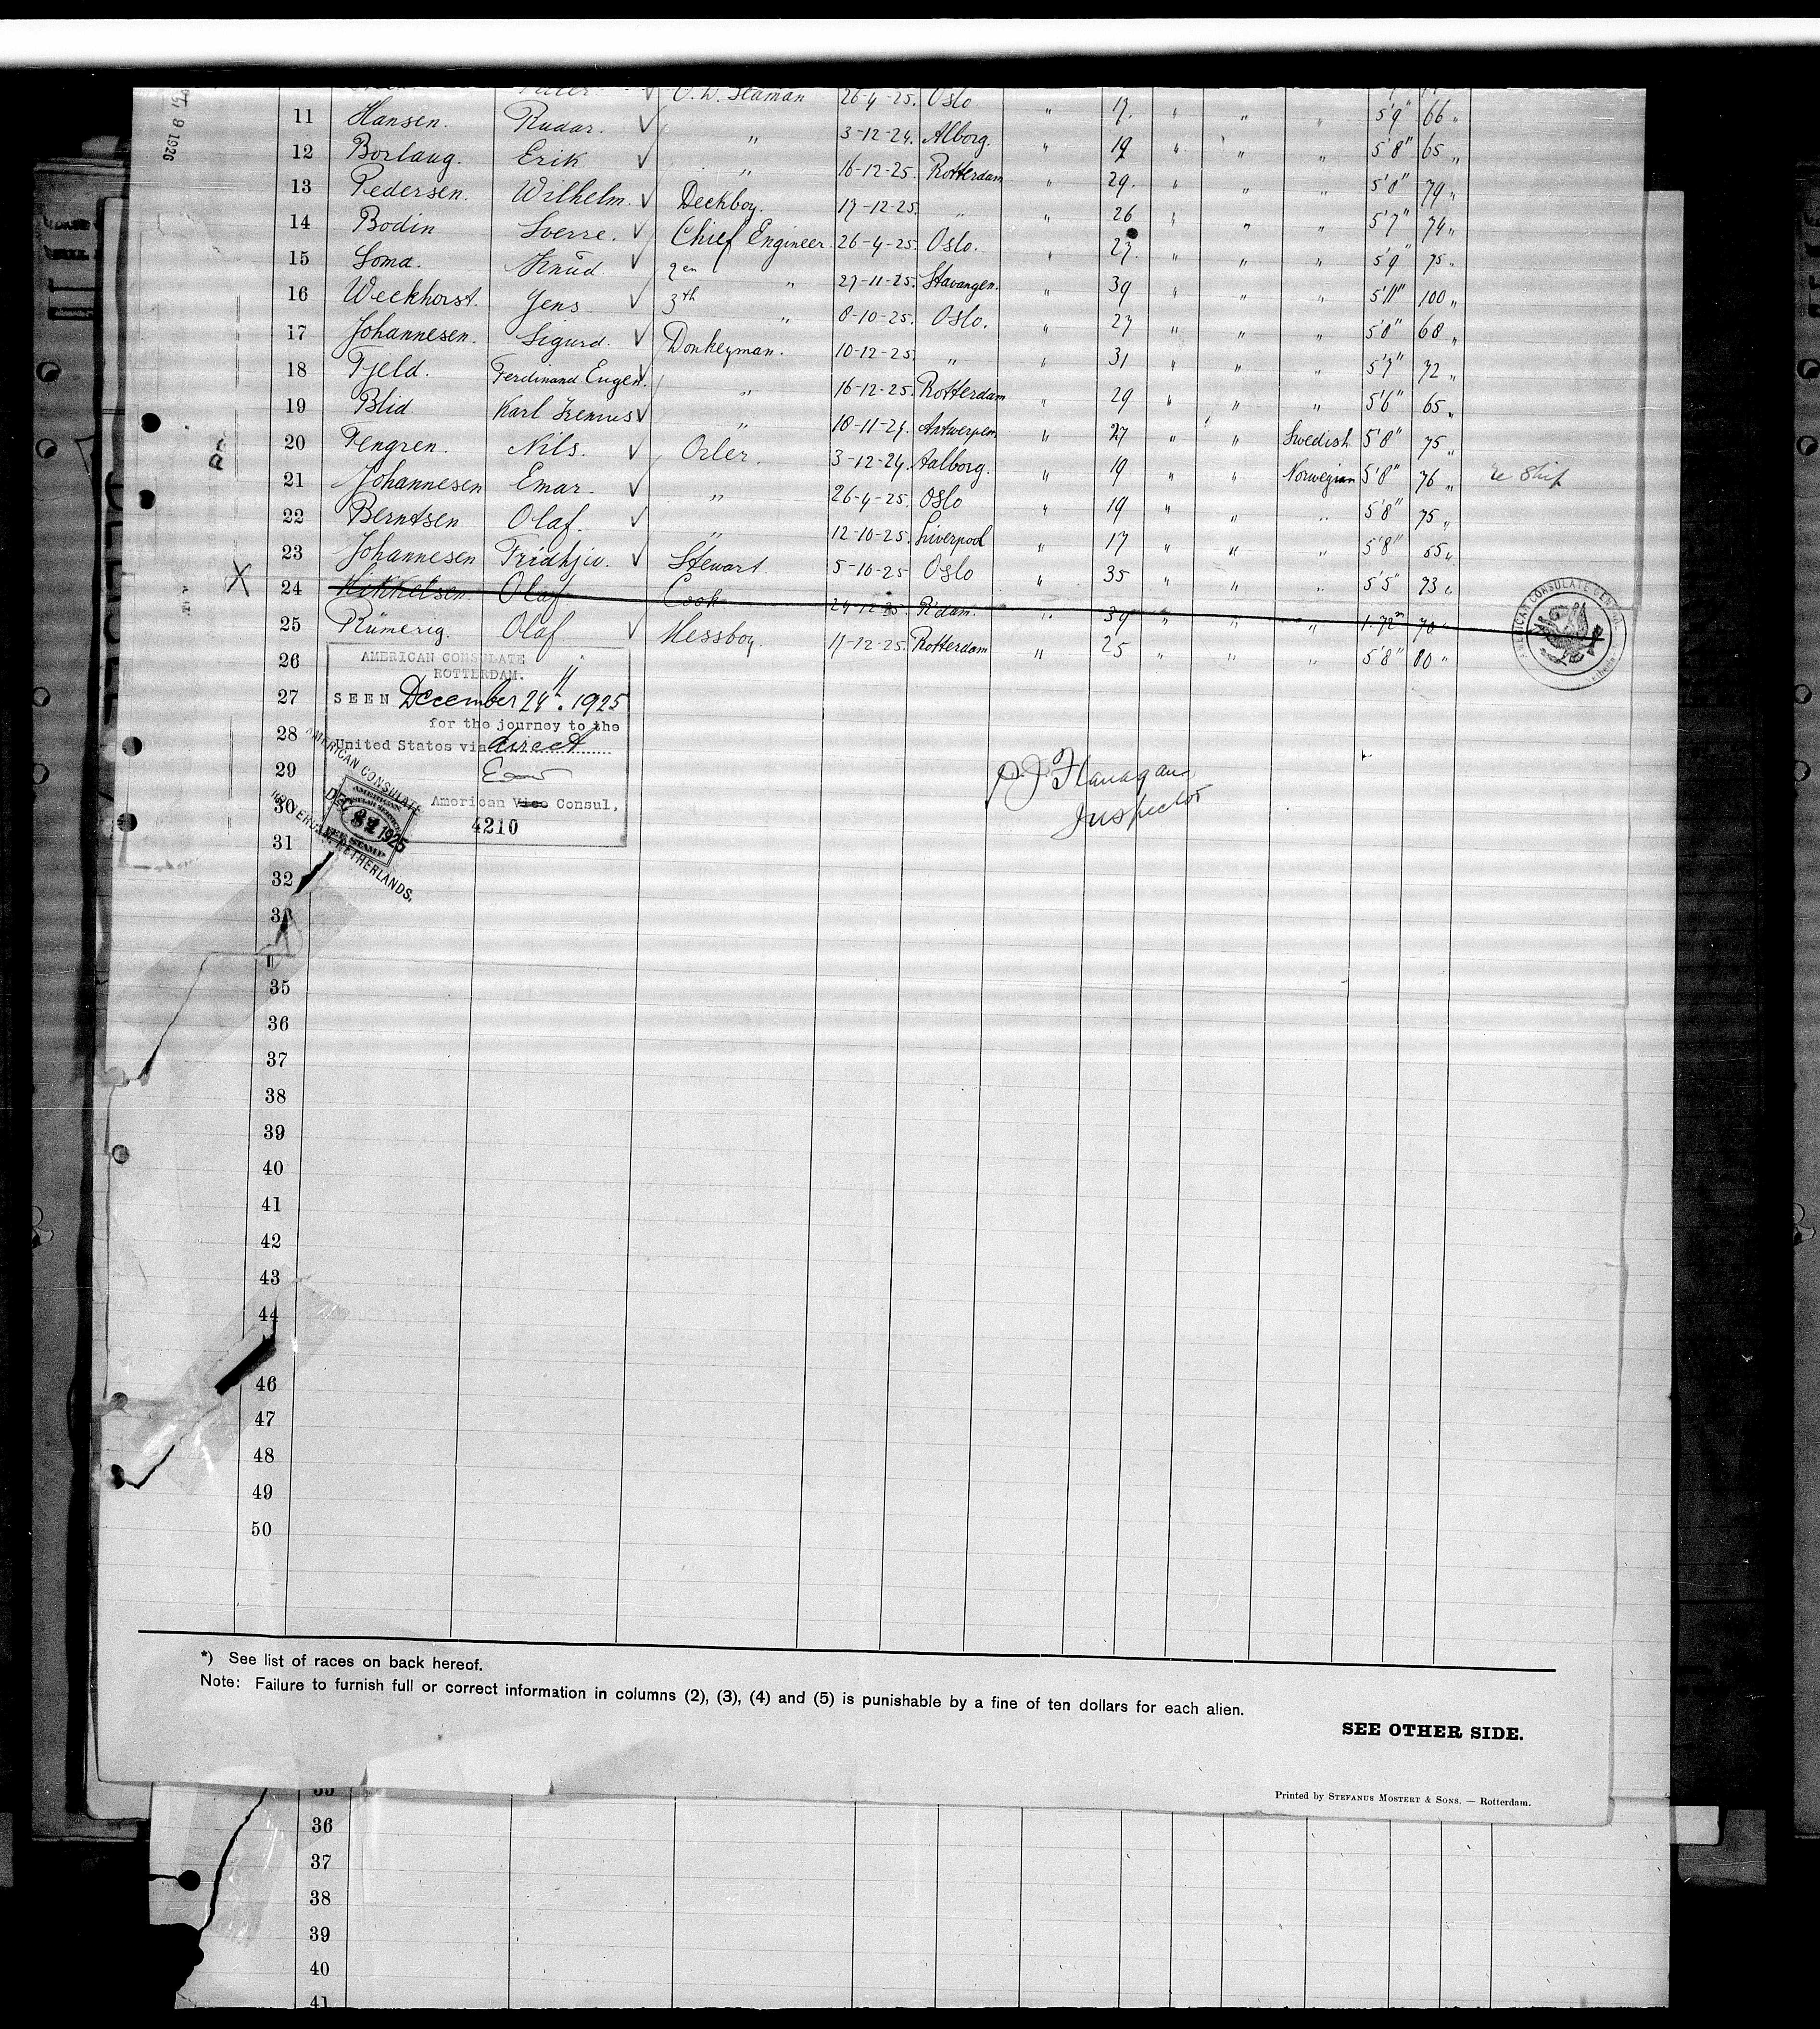 O. D. Seaman 26-4-25. Oslo " 17. " " " 66 "
11 Hansen. Rudar. ✓ " 3-12-24. Alborg. " 19 " " " 5'9" 65 "
12 Borlaug. Erik ✓ " 16-12-25. Rotterdam " 29. " " " 5'8" 79 "
13 Pedersen. Wilhelm. ✓ Deckboy. 17-12-25. " " 26 " " " 5'8" 74 "
14 Bodin Sverre. ✓ Chief Engineer. 26-4-25. Oslo. " 27. " " " 5'7" 75 "
15 Soma. Knud ✓ 2en " 27-11-25. Stavangen. " 39 " " " 5'9" 100 "
16 Weckhorst. Jens ✓ 3th " 8-10-25. Oslo. " 27 " " " 5'11" 68 "
17 Johannesen. Sigurd. ✓ Donkeyman. 10-12-25. " " 31 " " " 5'8" 72 "
18 Fjeld. Ferdinand Eugen. ✓ " 16-12-25. Rotterdam " 29 " " " 5'7" 65 "
19 Blid Karl Irenius ✓ " 18-11-24. Antwerpen " 27 " " Swedish 5'6" 75 "
20 Fengren. Nils. ✓ Oiler. 3-12-24. Aalborg. " 19 " " Norwegian 5'8" 76 " re Ship
21 Johannesen Emar. ✓ " 26-4-25. Oslo " 19 " " " 5'8" 75 "
22 Berntsen Olaf. ✓ " 12-10-25. Liverpool " 17 " " " 5'8" 65 "
23 Johannesen Fridtjiv. ✓ Stewart. 5-10-25 Oslo " 35 " " " 5'5" 73 "
X 24 Mikkelsen Olaf Cook 24-12-25. R'dam. " 34 " " " 1.72m 70 "
25 Rümerig. Olaf ✓ Messboy. 17-12-25. Rotterdam " 25 " " " 5'8" 80 "
AMERICAN CONSULATE GENERAL
26
AMERICAN CONSULATE
ROTTERDAM.
27
SEEN December 24th. 1925
for the journey to the
28
United States via direct
29
30
American Vice Consul,
4210
AMERICAN CONSULATE
ROTTERDAM, NETHERLANDS.
AMERICAN
FEE STAMP
DEC 1925
P J Flanagan
Inspector
31
32
33
35
36
37
38
39
40
41
42
43
44
46
47
48
49
50
*) See list of races on back hereof.
Note: Failure to furnish full or correct information in columns (2), (3), (4) and (5) is punishable by a fine of ten dollars for each alien.
SEE OTHER SIDE.
Printed by STEFANUS MOSTERT & SONS. — Rotterdam.
35
36
37
38
39
40
41